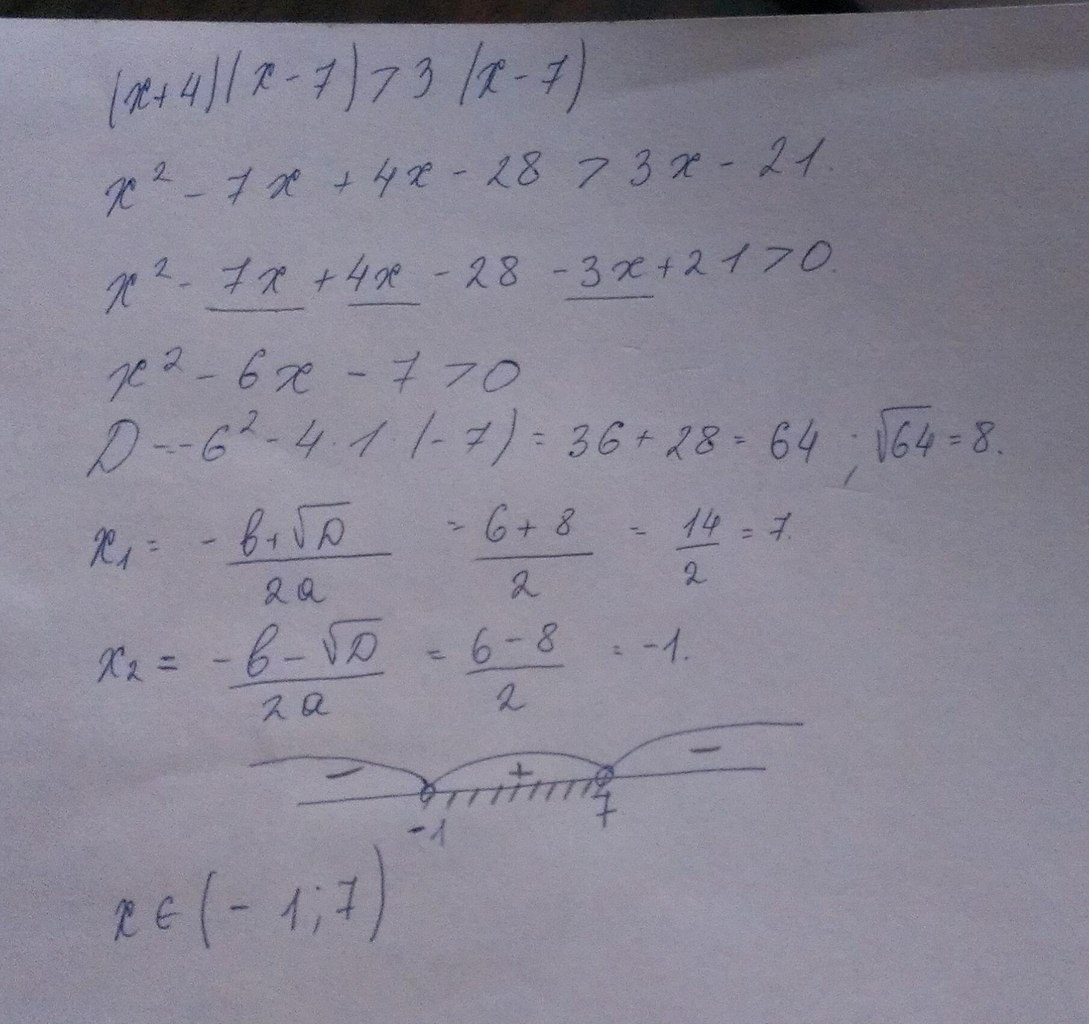 (x+4)(x-7)>3(x-7)
x² - 7x + 4x - 28 > 3x - 21.
x² - 7x + 4x - 28 - 3x + 21 > 0.
x² - 6x - 7 > 0
D = -6² - 4·1·(-7) = 36 + 28 = 64 ; √64 = 8.
x₁ = -b+√D / 2a = 6+8 / 2 = 14/2 = 7.
x₂ = -b-√D / 2a = 6-8 / 2 = -1.
- + -
-1 7
x ∈ (-1; 7)